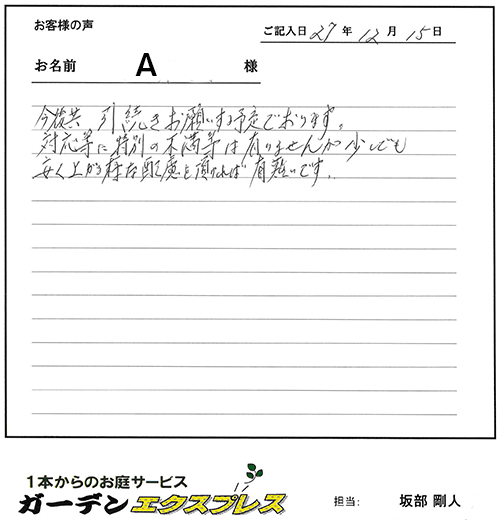 お客様の声
ご記入日 27 年 12 月 15 日
お名前 A 様
今後共 引続きお願いする予定でおります。
対応等に特別の不満等は有りませんが少しでも
安く上がる様な配慮を頂ければ有難いです。
1本からのお庭サービス
ガーデンエクスプレス
担当: 坂部 剛人